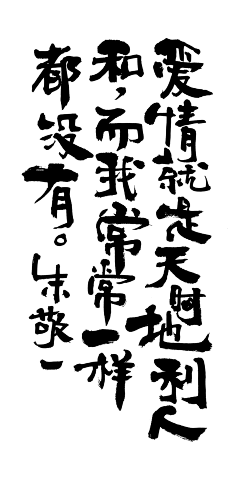 爱情就是天时地利人
和，而我常常一样
都没有。朱敬一